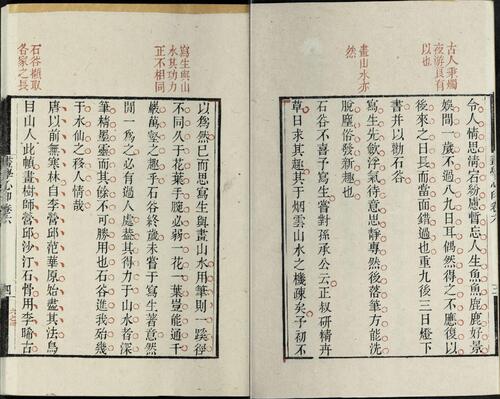 古人秉燭
夜游良有
以也
令人情思清宕紛慮暫忘人生魚鳥鹿鹿好景
娛間一歲不過八九日耳偶然得之不應復以
後來之日長而當面錯過也重九後三日燈下
書并以勸石谷
畫山水亦
然
寫生先斂浮氣待意思靜專然後落筆方能洗
脫塵俗發新趣也
石谷不喜予寫生嘗對孫承公云正叔研精卉
草日求其趣其于烟雲山水之機疎矣予初不
寫生與山
水其功力
正不相同
以爲然已而思寫生與畫山水用筆則一蹊徑
不同久于花葉手腕必弱一花一葉豈能通千
巖萬壑之趣乎石谷終歲未嘗于寫生著意然
閒一爲之必有過人處葢其得力于山水者深
筆精墨靈而其餘不可勝用也石谷進我殆幾
于水仙之移人情哉
石谷擷取
各家之長
唐以前無寒林自李營邱范華原始盡其法烏
目山人此幀畫樹師營邱沙汀石骨用李晞古
畫學心印卷六
四